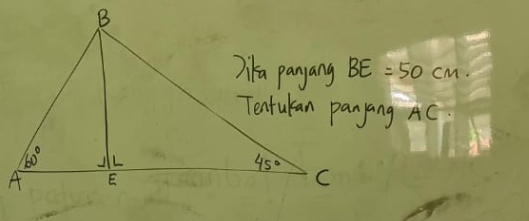 B
Jika panjang BE = 50 cm.
Tentukan panjang AC.
60°
45°
A
E
C